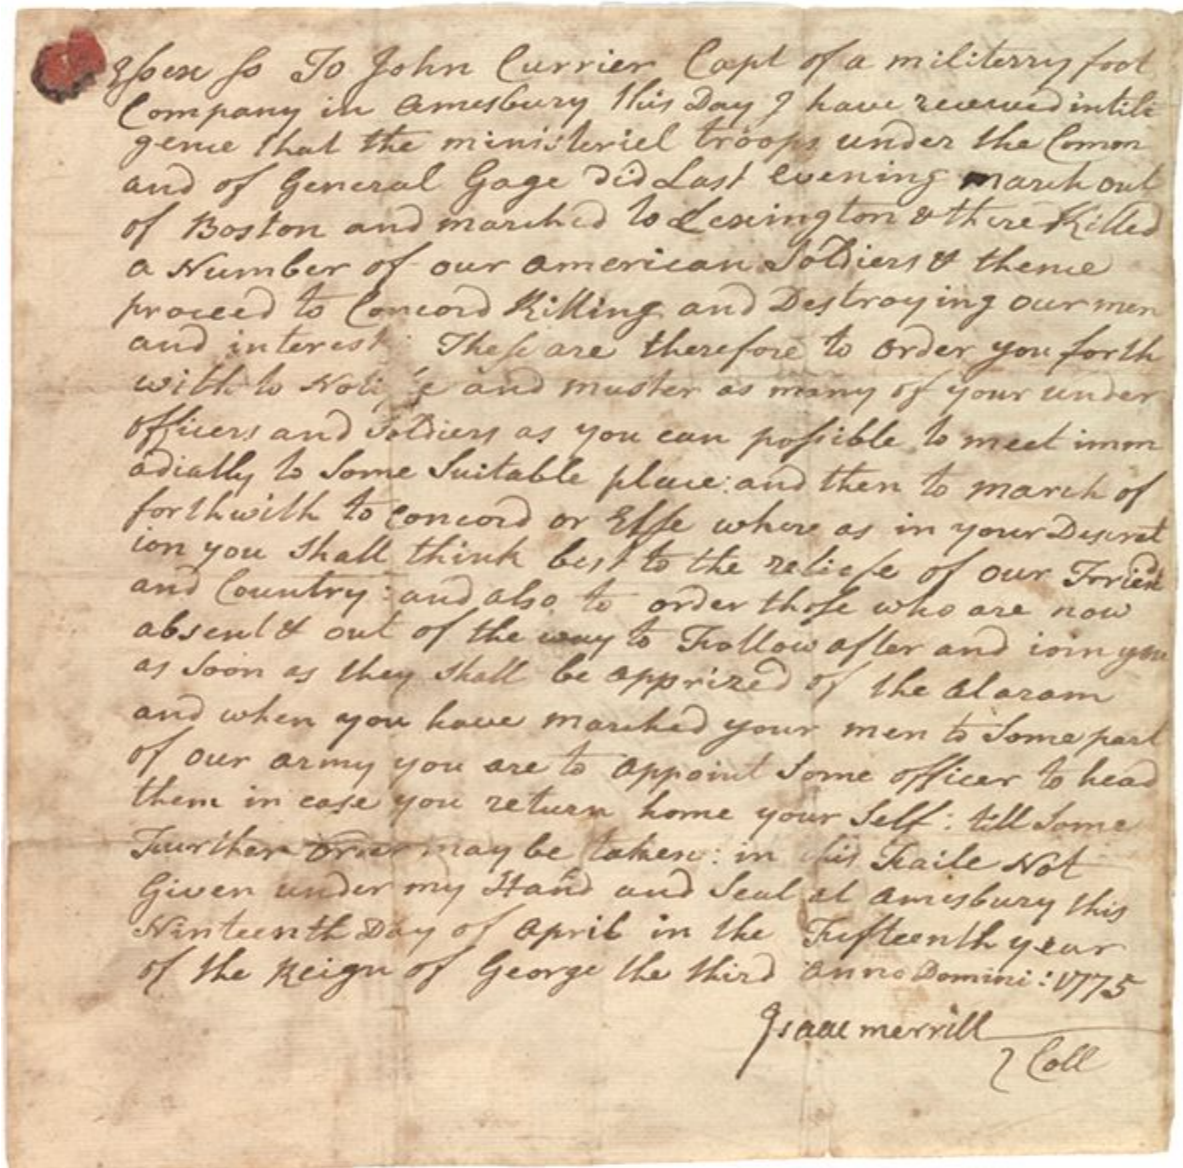 Essex ss To John Currier Capt of a militerry foot
Company in Amesbury this Day I have receved intili
gence that the ministeriel troops under the Comon
and of General Gage Did Last evening march out
of Boston and marched to Lexington & there Killed
a Number of our American Soldiers & thence
proceed to Concord Killing and Destroying our men
and interest: These are therefore to order you forth
with to and muster as many of your under
officers and Soldiers as you can possible to meet imm
adiatly to Some Suitable place: and then to march of
forthwith to Concord or Else where as in your Descret
ion you Shall think best to the reliefe of our Friend
and Country: and also to order those who are now
absent & out of the way to Follow after and ioin you
as Soon as they shall be apprized of the Alaram
and when you have marched your men to Some part
of our army you are to appoint some officer to head
them in case you return home your Self: till Some
Further order may be taken: in this Faile Not
Given under my Hand and Seal at Amesbury this
Ninteenth Day of April in the Fifteenth year
of the Reign of George the third Anno Domini: 1775
Isaac merrill
Coll